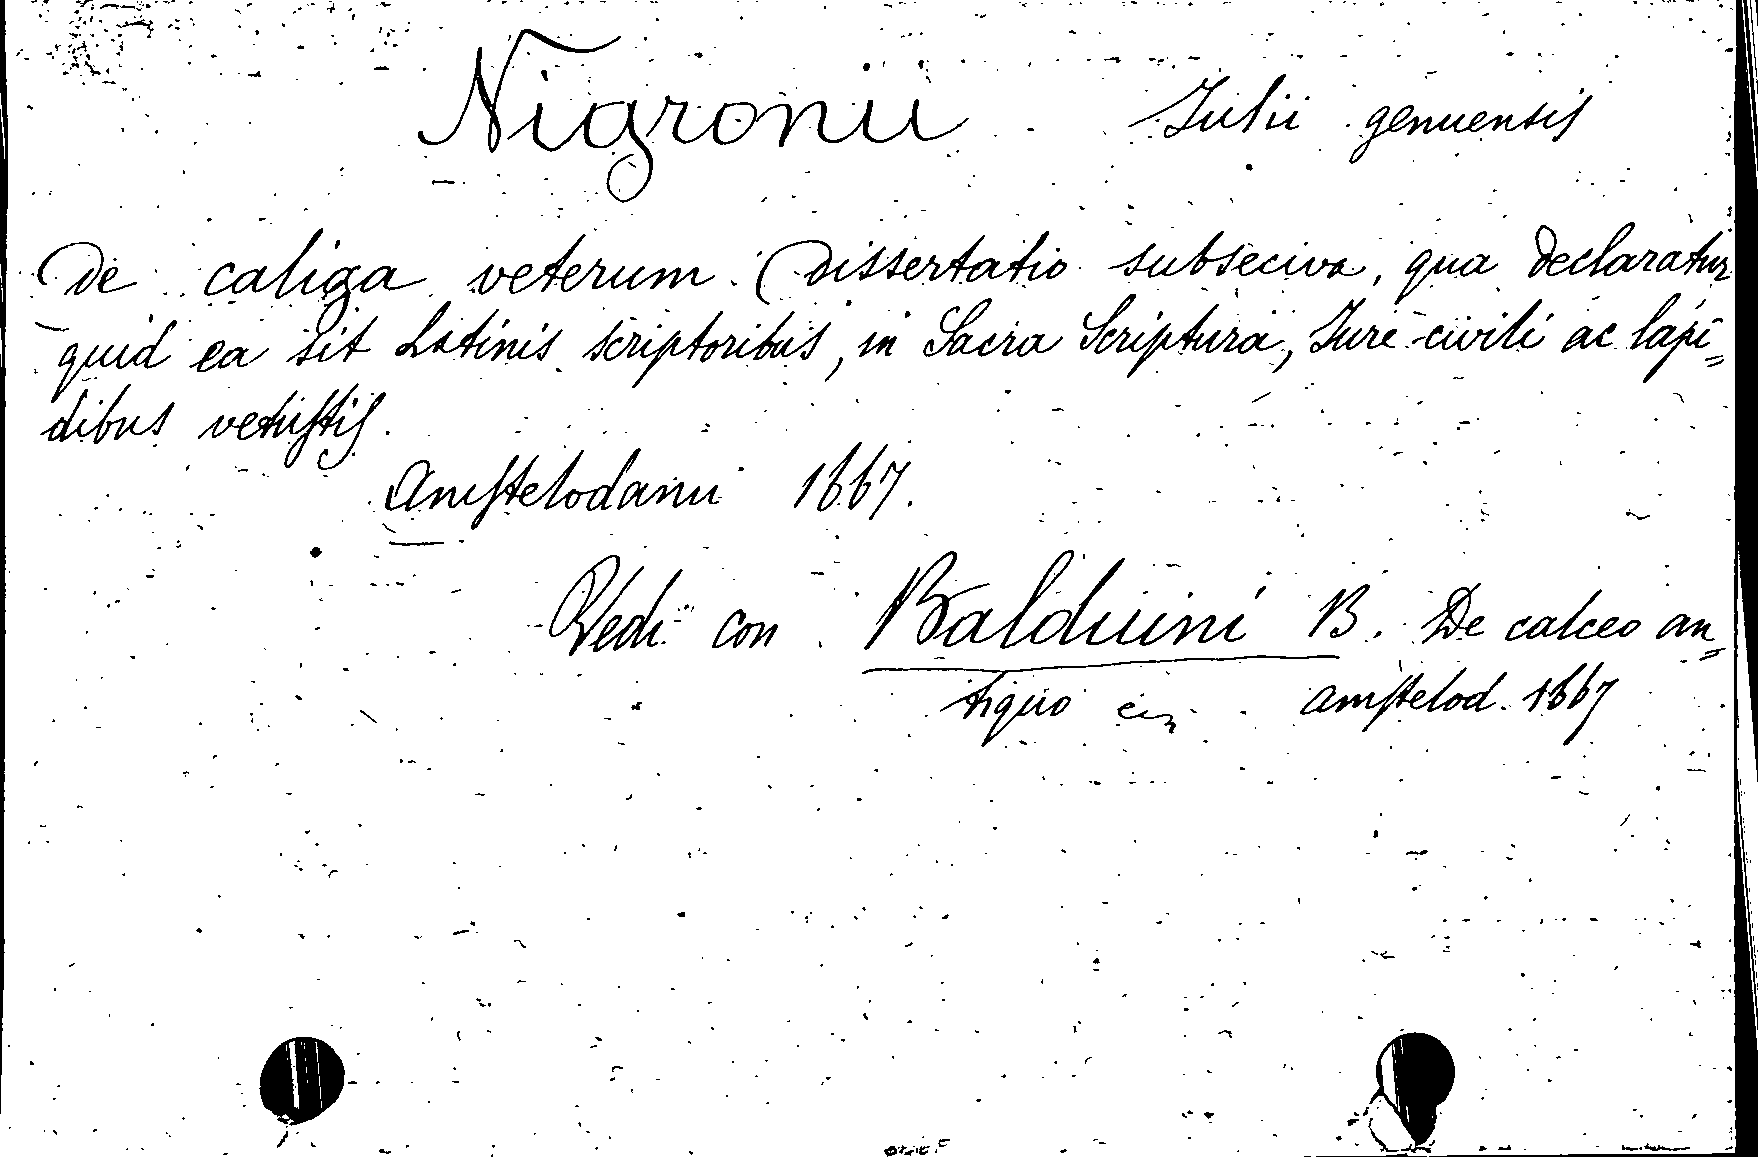 Nigronii Julii genuensis
De caliga veterum. Dissertatio subseciva, qua declaratur
quid ea sit Latinis scriptoribus, in Sacra Scriptura, Jure civili ac lapi=
dibus vetustis.
Amstelodami 1667.
Vedi con Balduini B. De calceo an=
tiquo Amstelod. 1667